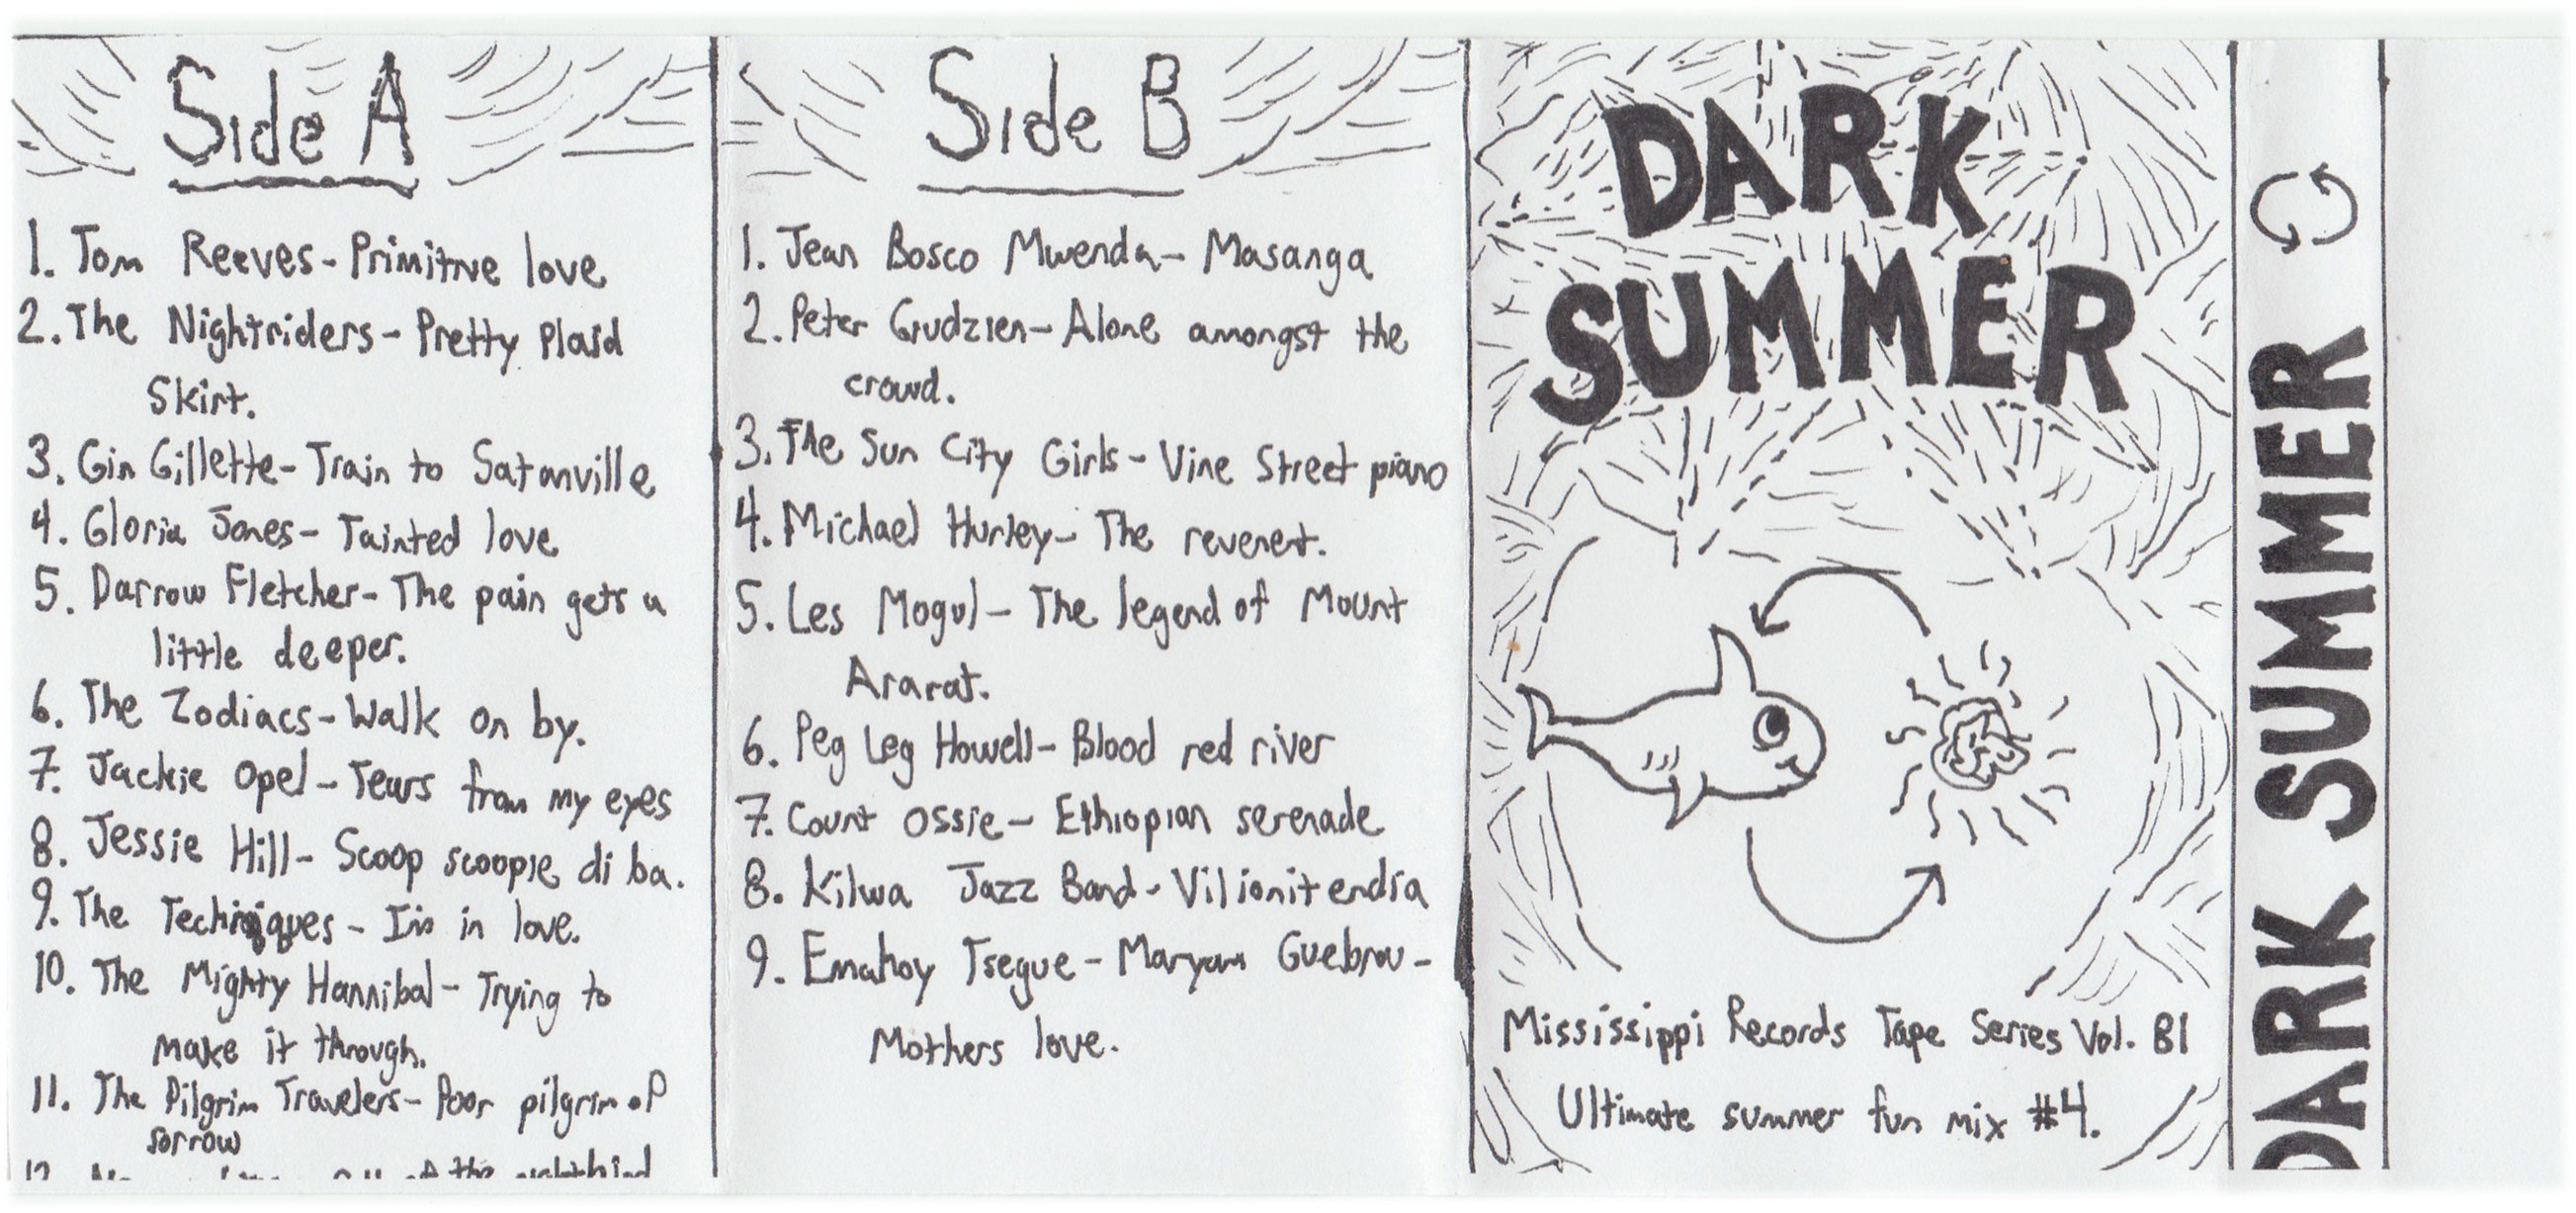 Side A
1. Tom Reeves - Primitive love
2. The Nightriders - Pretty Plaid
Skirt.
3. Gin Gillette - Train to Satanville
4. Gloria Jones - Tainted love
5. Darrow Fletcher - The pain gets a
little deeper.
6. The Zodiacs - Walk on by.
7. Jackie Opel - Tears from my eyes
8. Jessie Hill - Scoop scoopie di ba.
9. The Techniques - I'm in love.
10. The Mighty Hannibal - Trying to
make it through.
11. The Pilgrim Travelers - Poor pilgrim of
sorrow
12. of the
Side B
1. Jean Bosco Mwenda - Masanga
2. Peter Grudzien - Alone amongst the
crowd.
3. The Sun City Girls - Vine Street piano
4. Michael Hurley - The revenent.
5. Les Mogul - The legend of Mount
Ararat.
6. Peg Leg Howell - Blood red river
7. Count Ossie - Ethiopian serenade
8. Kilwa Jazz Band - Vilionitendia
9. Emahoy Tsegue - Maryam Guebrou -
Mothers love.
DARK
SUMMER
Mississippi Records Tape Series Vol. 81
Ultimate summer fun mix #4.
DARK SUMMER